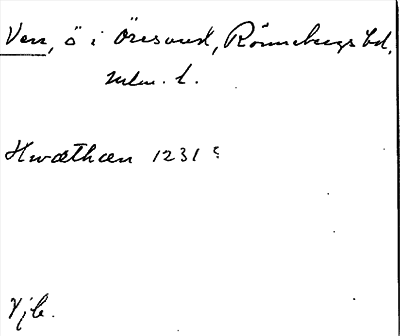 Ven, ö i Öresund, Rönnebergs hd,
Mlm. l.
Hwæthæn 1231
Vjb.